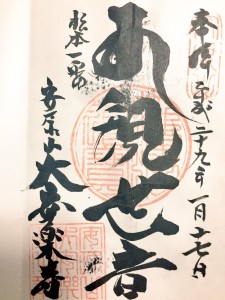 奉拝 平成二十九年一月十七日
観世音
松本一番
安原山大安楽寺